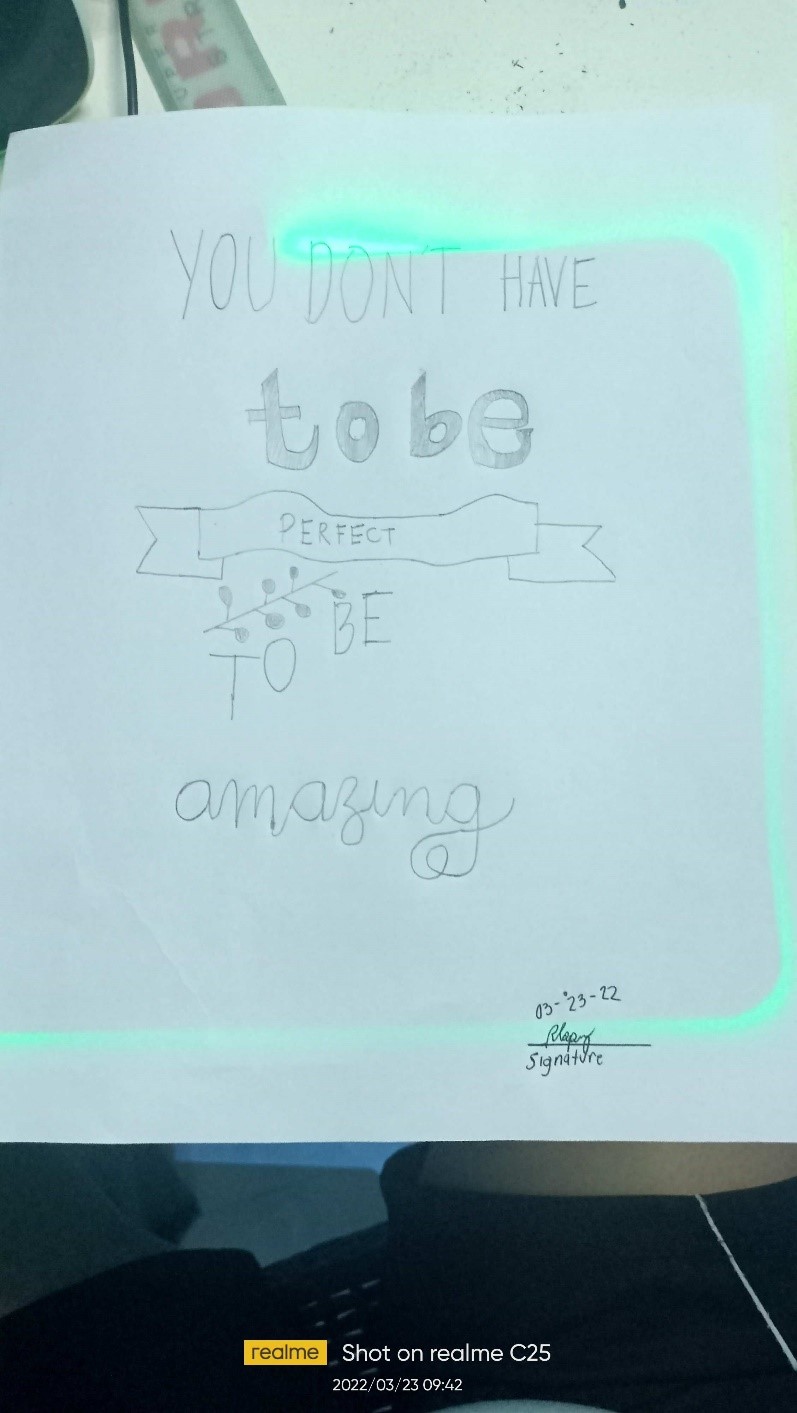 YOU DON'T HAVE
to be
PERFECT
TO BE
amazing
03-23-22
Signature
realme Shot on realme C25
2022/03/23 09:42